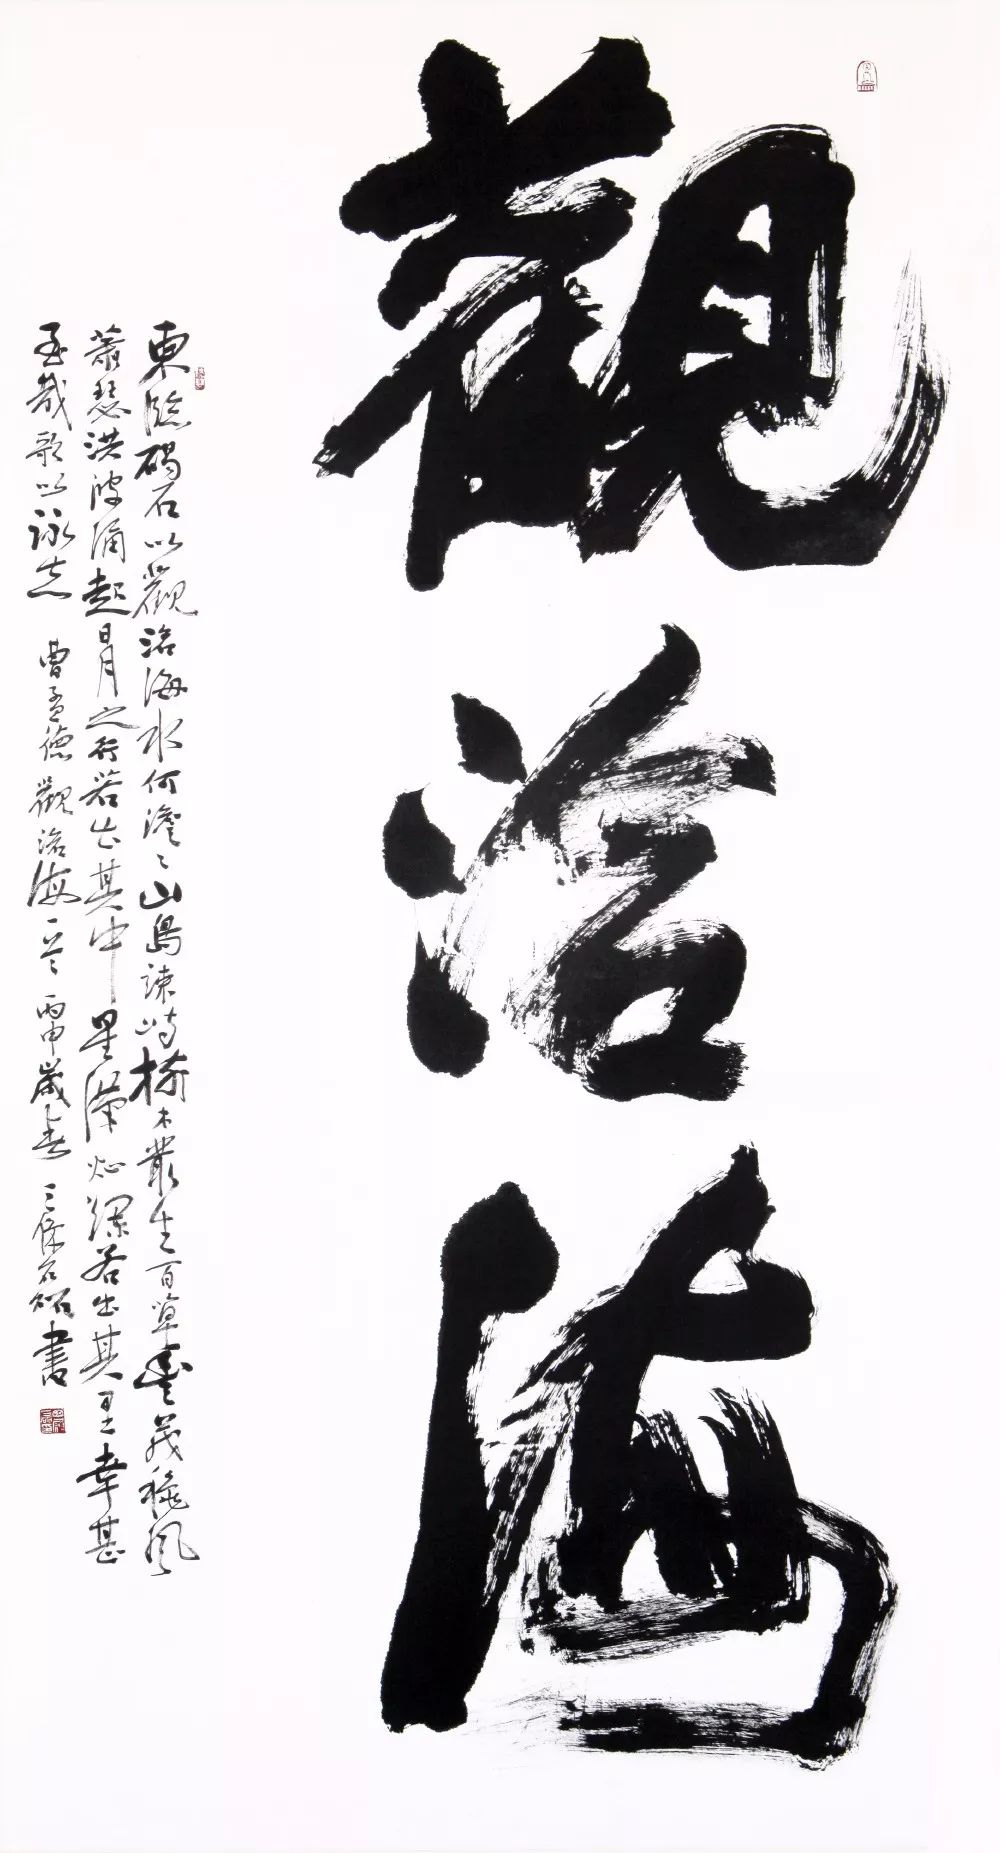 觀滄海
東臨碣石以觀滄海水何澹〻山島竦峙樹木叢生百草豐茂秋風
蕭瑟洪波涌起日月之行若出其中星漢灿爛若出其里幸甚
至哉歌以詠志 曹孟德觀滄海 丙申歲春 書